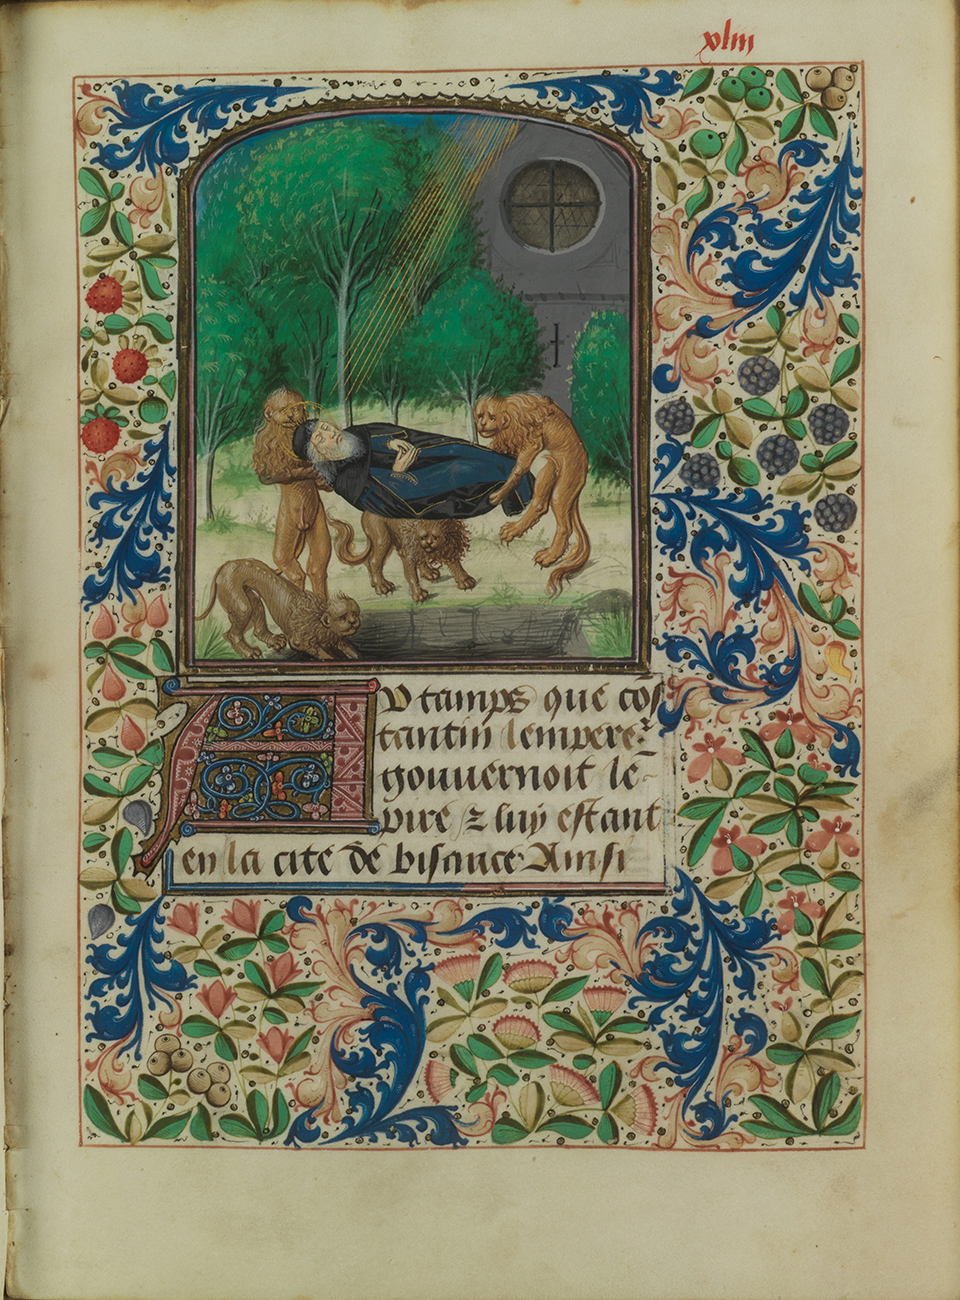 xliii
Au tamps que cõs
tantin lempereᷣ
gouuernoit lē
pire ⁊ luy estant
en la cite de bisance Ainsi